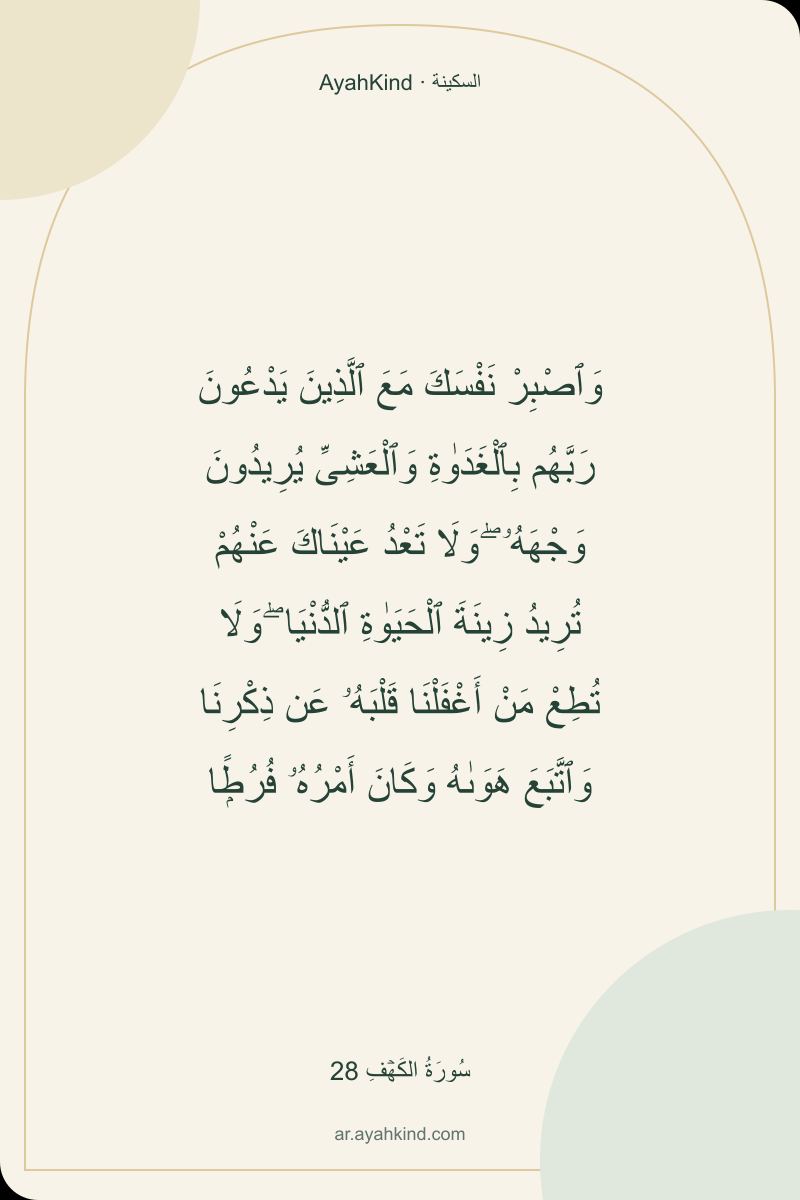 AyahKind · السكينة
وَٱصْبِرْ نَفْسَكَ مَعَ ٱلَّذِينَ يَدْعُونَ
رَبَّهُم بِٱلْغَدَوٰةِ وَٱلْعَشِىِّ يُرِيدُونَ
وَجْهَهُۥ ۖ وَلَا تَعْدُ عَيْنَاكَ عَنْهُمْ
تُرِيدُ زِينَةَ ٱلْحَيَوٰةِ ٱلدُّنْيَا ۖ وَلَا
تُطِعْ مَنْ أَغْفَلْنَا قَلْبَهُۥ عَن ذِكْرِنَا
وَٱتَّبَعَ هَوَىٰهُ وَكَانَ أَمْرُهُۥ فُرُطًۭا
سُورَةُ الكَهۡفِ 28
ar.ayahkind.com